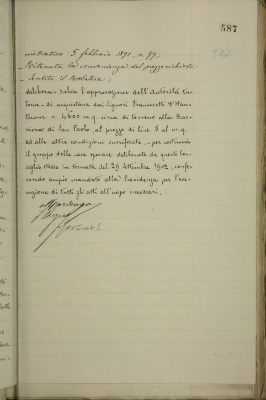 587
nistrativo 5 febbraio 1890, n. 99;
Ritenuta la convenienza del prezzo richiesto
Sentito il Relatore;
delibera - salva l'approvazione dell'Autorità tu-
toria - di acquistare dai Signori Francesetti d'Haut-
circa di terreno alla Bar-
riera di San Paolo al prezzo di Lire 8 al m.q.
ed alle altre condizioni surriferite, per costruirvi
il gruppo delle case operaie deliberate da questo Con-
siglio stesso in tornata del 29 settembre 1902; confe-
rendo ampio mandato alla Presidenza per l'ese-
cuzione di tutti gli atti all'uopo necessari.